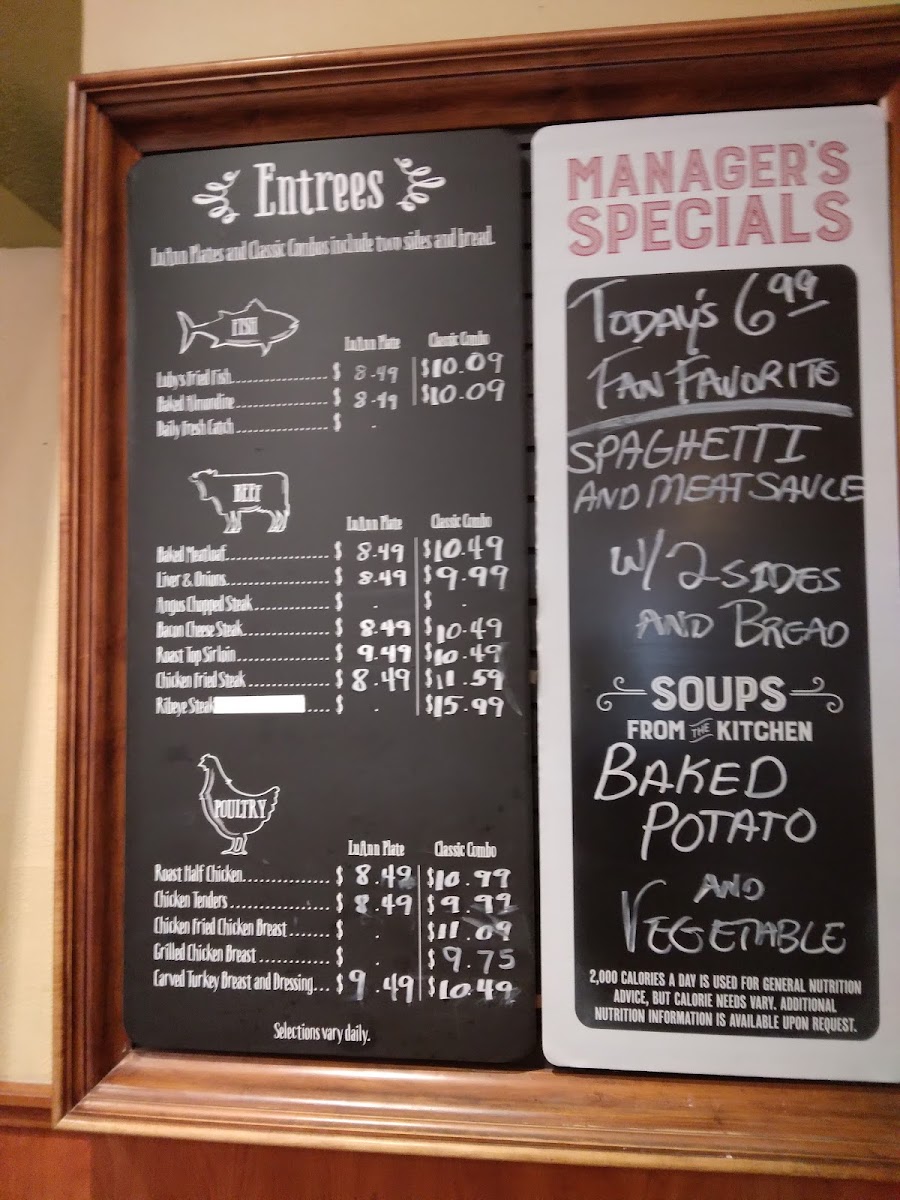 Entrees
LuAnn Plates and Classic Combos include two sides and bread.
FISH
LuAnn Plate Classic Combo
Luby's Fried Fish.................... $ 8.49 $10.09
Baked Almondine.................... $ 8.49 $10.09
Daily Fresh Catch .................... $ .
BEEF
LuAnn Plate Classic Combo
Baked Meatloaf.................... $ 8.49 $10.49
Liver & Onions.................... $ 8.49 $9.99
Angus Chopped Steak.............. $ . $ .
Bacon Cheese Steak................. $ 8.49 $10.49
Roast Top Sirloin.................... $ 9.49 $10.49
Chicken Fried Steak................ $ 8.49 $11.59
Ribeye Steak .... $ . $15.99
POULTRY
LuAnn Plate Classic Combo
Roast Half Chicken................. $ 8.49 $10.99
Chicken Tenders.................... $ 8.49 $9.99
Chicken Fried Chicken Breast....... $ . $11.09
Grilled Chicken Breast ............. $ . $9.75
Carved Turkey Breast and Dressing... $9.49 $10.49
Selections vary daily.
MANAGER'S
SPECIALS
TODAY'S 6.99
FAN FAVORITE
SPAGHETTI
AND MEAT SAUCE
W/2 SIDES
AND BREAD
SOUPS
FROM THE KITCHEN
BAKED
POTATO
AND
VEGETABLE
2,000 CALORIES A DAY IS USED FOR GENERAL NUTRITION
ADVICE, BUT CALORIE NEEDS VARY. ADDITIONAL
NUTRITION INFORMATION IS AVAILABLE UPON REQUEST.